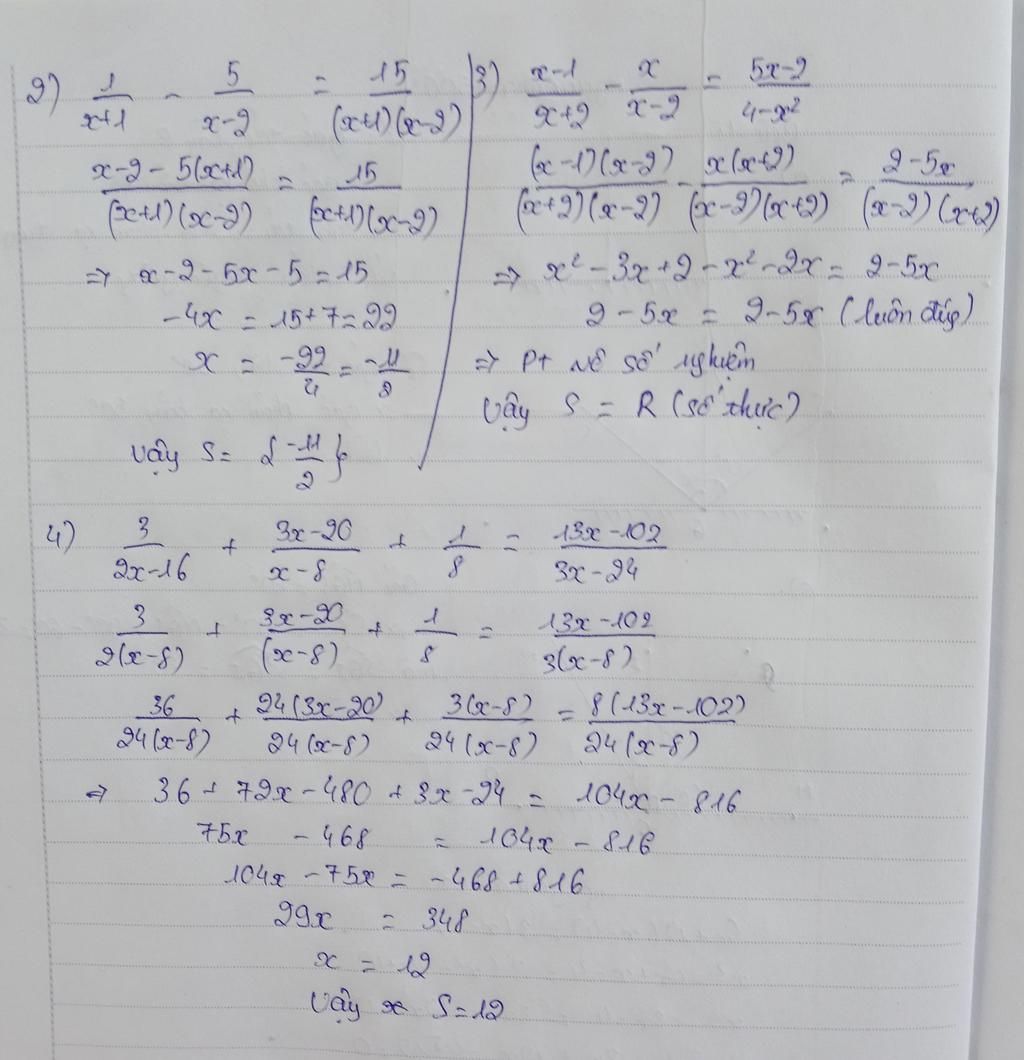 2) 1/(x+1) - 5/(x-2) = 15/((x+1)(x-2))
(x-2-5(x+1))/((x+1)(x-2)) = 15/((x+1)(x-2))
=> x-2-5x-5=15
-4x = 15+7=22
x = -22/4 = -11/2
Vậy S= {-11/2}
3) (x-1)/(x+2) - x/(x-2) = (5x-2)/(4-x²)
((x-1)(x-2))/((x+2)(x-2)) - (x(x+2))/((x-2)(x+2)) = (2-5x)/((x-2)(x+2))
=> x²-3x+2-x²-2x = 2-5x
2-5x = 2-5x (luôn đúg)
=> Pt vô số nghiệm
Vậy S = R (số thực)
4) 3/(2x-16) + (3x-20)/(x-8) + 1/8 = (13x-102)/(3x-24)
3/(2(x-8)) + (3x-20)/((x-8)) + 1/8 = (13x-102)/(3(x-8))
36/(24(x-8)) + (24(3x-20))/(24(x-8)) + (3(x-8))/(24(x-8)) = (8(13x-102))/(24(x-8))
=> 36+72x-480+3x-24 = 104x-816
75x - 468 = 104x - 816
104x-75x = -468+816
29x = 348
x = 12
Vậy S=12